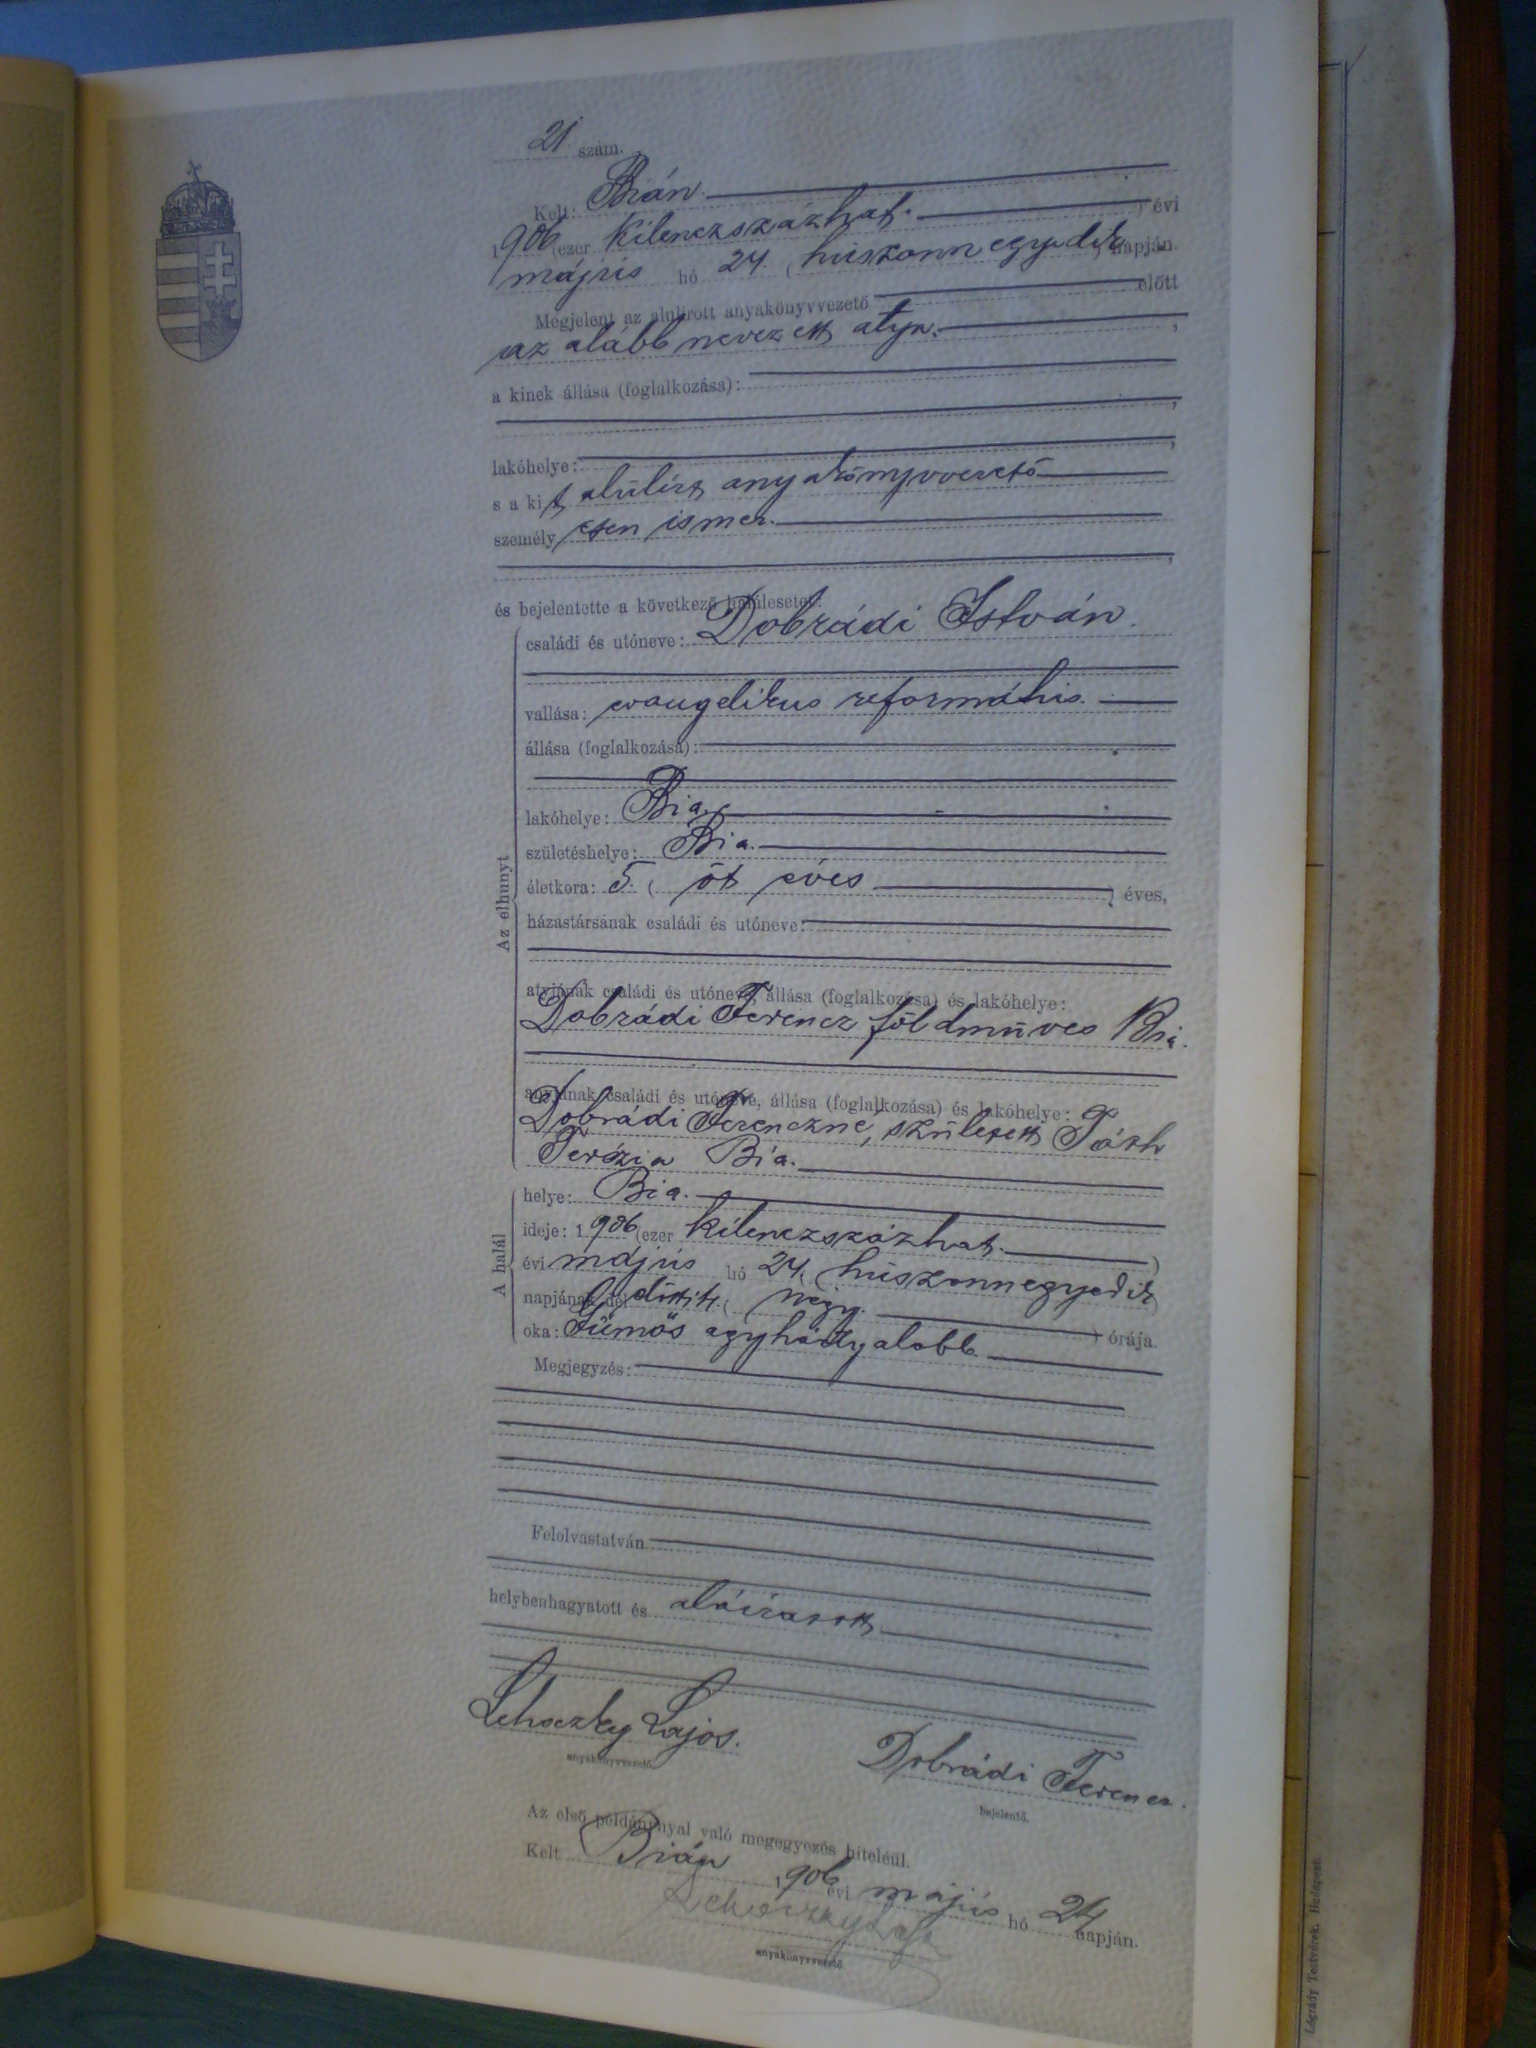 21 szám.
Kelt: Bián.
1906 (ezer kilenczszázhat.) évi
május hó 24 (huszonnegyedik) napján.
Megjelent az alulirott anyakönyvvezető előtt
az alább nevezett atya.,
a kinek állása (foglalkozása):
,
lakóhelye: ,
s a kit alulírt anyakönyvvezető
személyesen ismer.
,
és bejelentette a következő halálesetet:
Az elhunyt
családi és utóneve: Dobrádi István.
vallása: evangelikus református.
állása (foglalkozása):
lakóhelye: Bia.
születéshelye: Bia.
életkora: 5. (öt éves) éves,
házastársának családi és utóneve:
atyjának családi és utóneve, állása (foglalkozása) és lakóhelye:
Dobrádi Ferencz földmüves Bia.
anyjának családi és utóneve, állása (foglalkozása) és lakóhelye:
Dobrádi Ferenczné, született Tóth
Terézia Bia.
A halál
helye: Bia.
ideje: 1906 (ezer kilenczszázhat.)
évi május hó 24. (huszonnegyedik)
napjának dél előtti (négy.) órája.
oka: agyhártyalobb.
Megjegyzés:
Felolvastatván
helybenhagyatott és aláíratott
Lehoczky Lajos.
anyakönyvvezető.
Dobrádi Ferencz.
bejelentő.
Az első példánynyal való megegyezés hiteléül.
Kelt Bián 1906 évi május hó 24 napján.
Lehoczky Lajos
anyakönyvvezető.
Légrády Testvérek, Budapest.